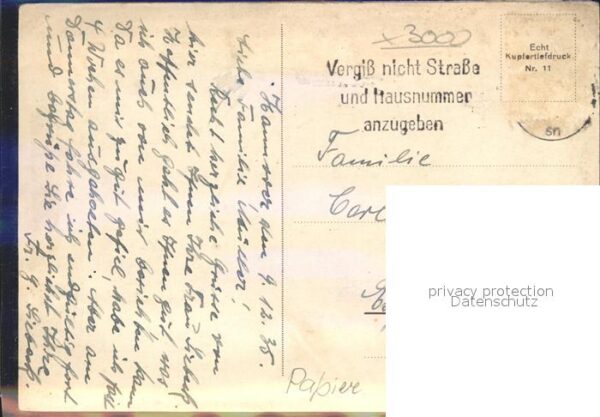 Hannover den 9.12.35.
Liebe Familie Müller!
Recht herzliche Grüsse von
hier sendet Ihnen Ihre Frau
Hoffentlich geht es Ihnen gut was
ich auch von mir berichten kann
Da es mir so gut gefiel, habe ich fast
4 Wochen ausgehalten. Aber am
Donnerstag fahre ich endgültig fort
und begrüsse Sie herzlichst Ihre
Fr. G.
x3000
Vergiß nicht Straße
und Hausnummer
anzugeben
Echt
Kupfertiefdruck
Nr. 11
Familie
Carl
privacy protection
Datenschutz
Papier